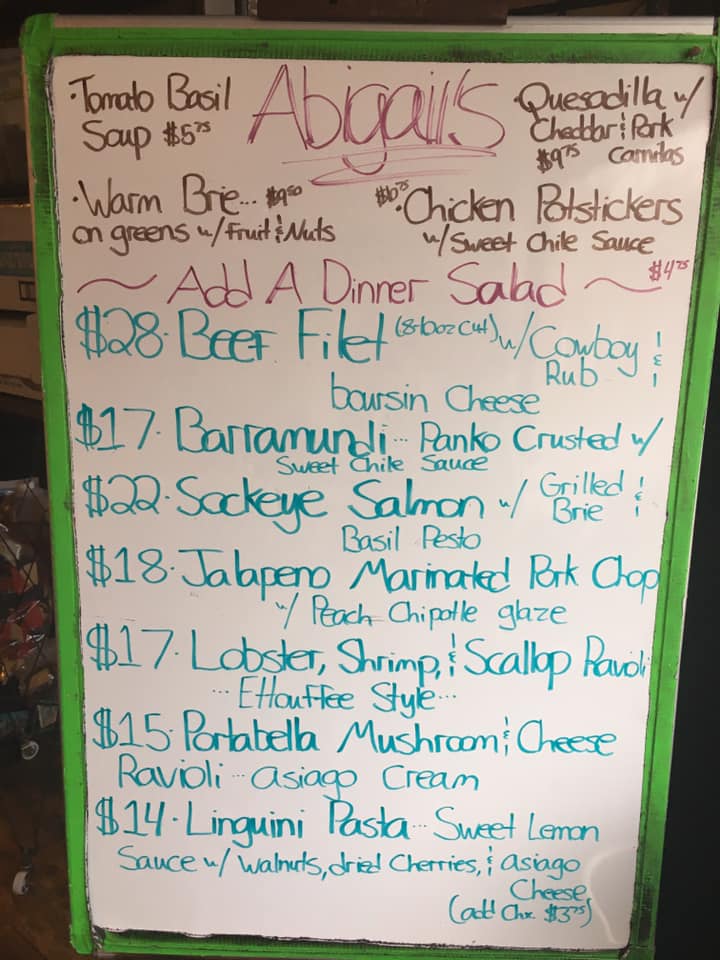 Abigail's
·Tomato Basil
Soup $5⁷⁵
·Quesadilla w/
Cheddar & Pork
$9⁷⁵ Carnitas
·Warm Brie... $9⁵⁰
on greens w/ Fruit & Nuts
·Chicken Potstickers
w/ Sweet Chile Sauce
~ Add A Dinner Salad ~ $4⁷⁵
$28· Beef Filet (8-10oz cut) w/ Cowboy &
Rub
boursin Cheese
$17· Barramundi... Panko Crusted w/
Sweet Chile Sauce
$22· Sockeye Salmon w/ Grilled &
Brie
Basil Pesto
$18· Jalapeno Marinated Pork Chop
w/ Peach Chipotle glaze
$17· Lobster, Shrimp, & Scallop Ravioli
... Etouffee Style...
$15· Portabella Mushroom & Cheese
Ravioli ... asiago Cream
$14· Linguini Pasta... Sweet Lemon
Sauce w/ walnuts, dried Cherries, & asiago
Cheese
(add Chx. $3⁷⁵)